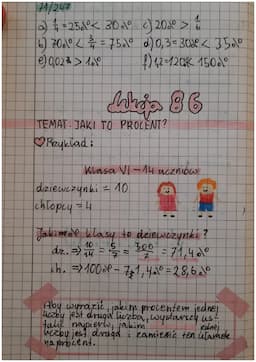 71/247
a) 1/4 = 25% < 30% c) 20% > 1/6
b) 70% < 3/4 = 75% d) 0,3 = 30% < 35%
e) 0,03 > 1% f) 1,2 = 120% < 150%
Lekcja 86
TEMAT: JAKI TO PROCENT?
Przykład:
Klasa VI – 14 uczniów
dziewczynki = 10
chłopcy = 4
Jaki % klasy to dziewczynki?
dz. => 10/14 = 5/7 = 71,4%
ch. => 100% - 71,4% = 28,6%
Aby wyrazić, jakim procentem jednej
liczby jest druga liczba, wystarczy us-
talić najpierw, jakim jednej
liczby jest druga i zamienić ten ułamek
na procent.